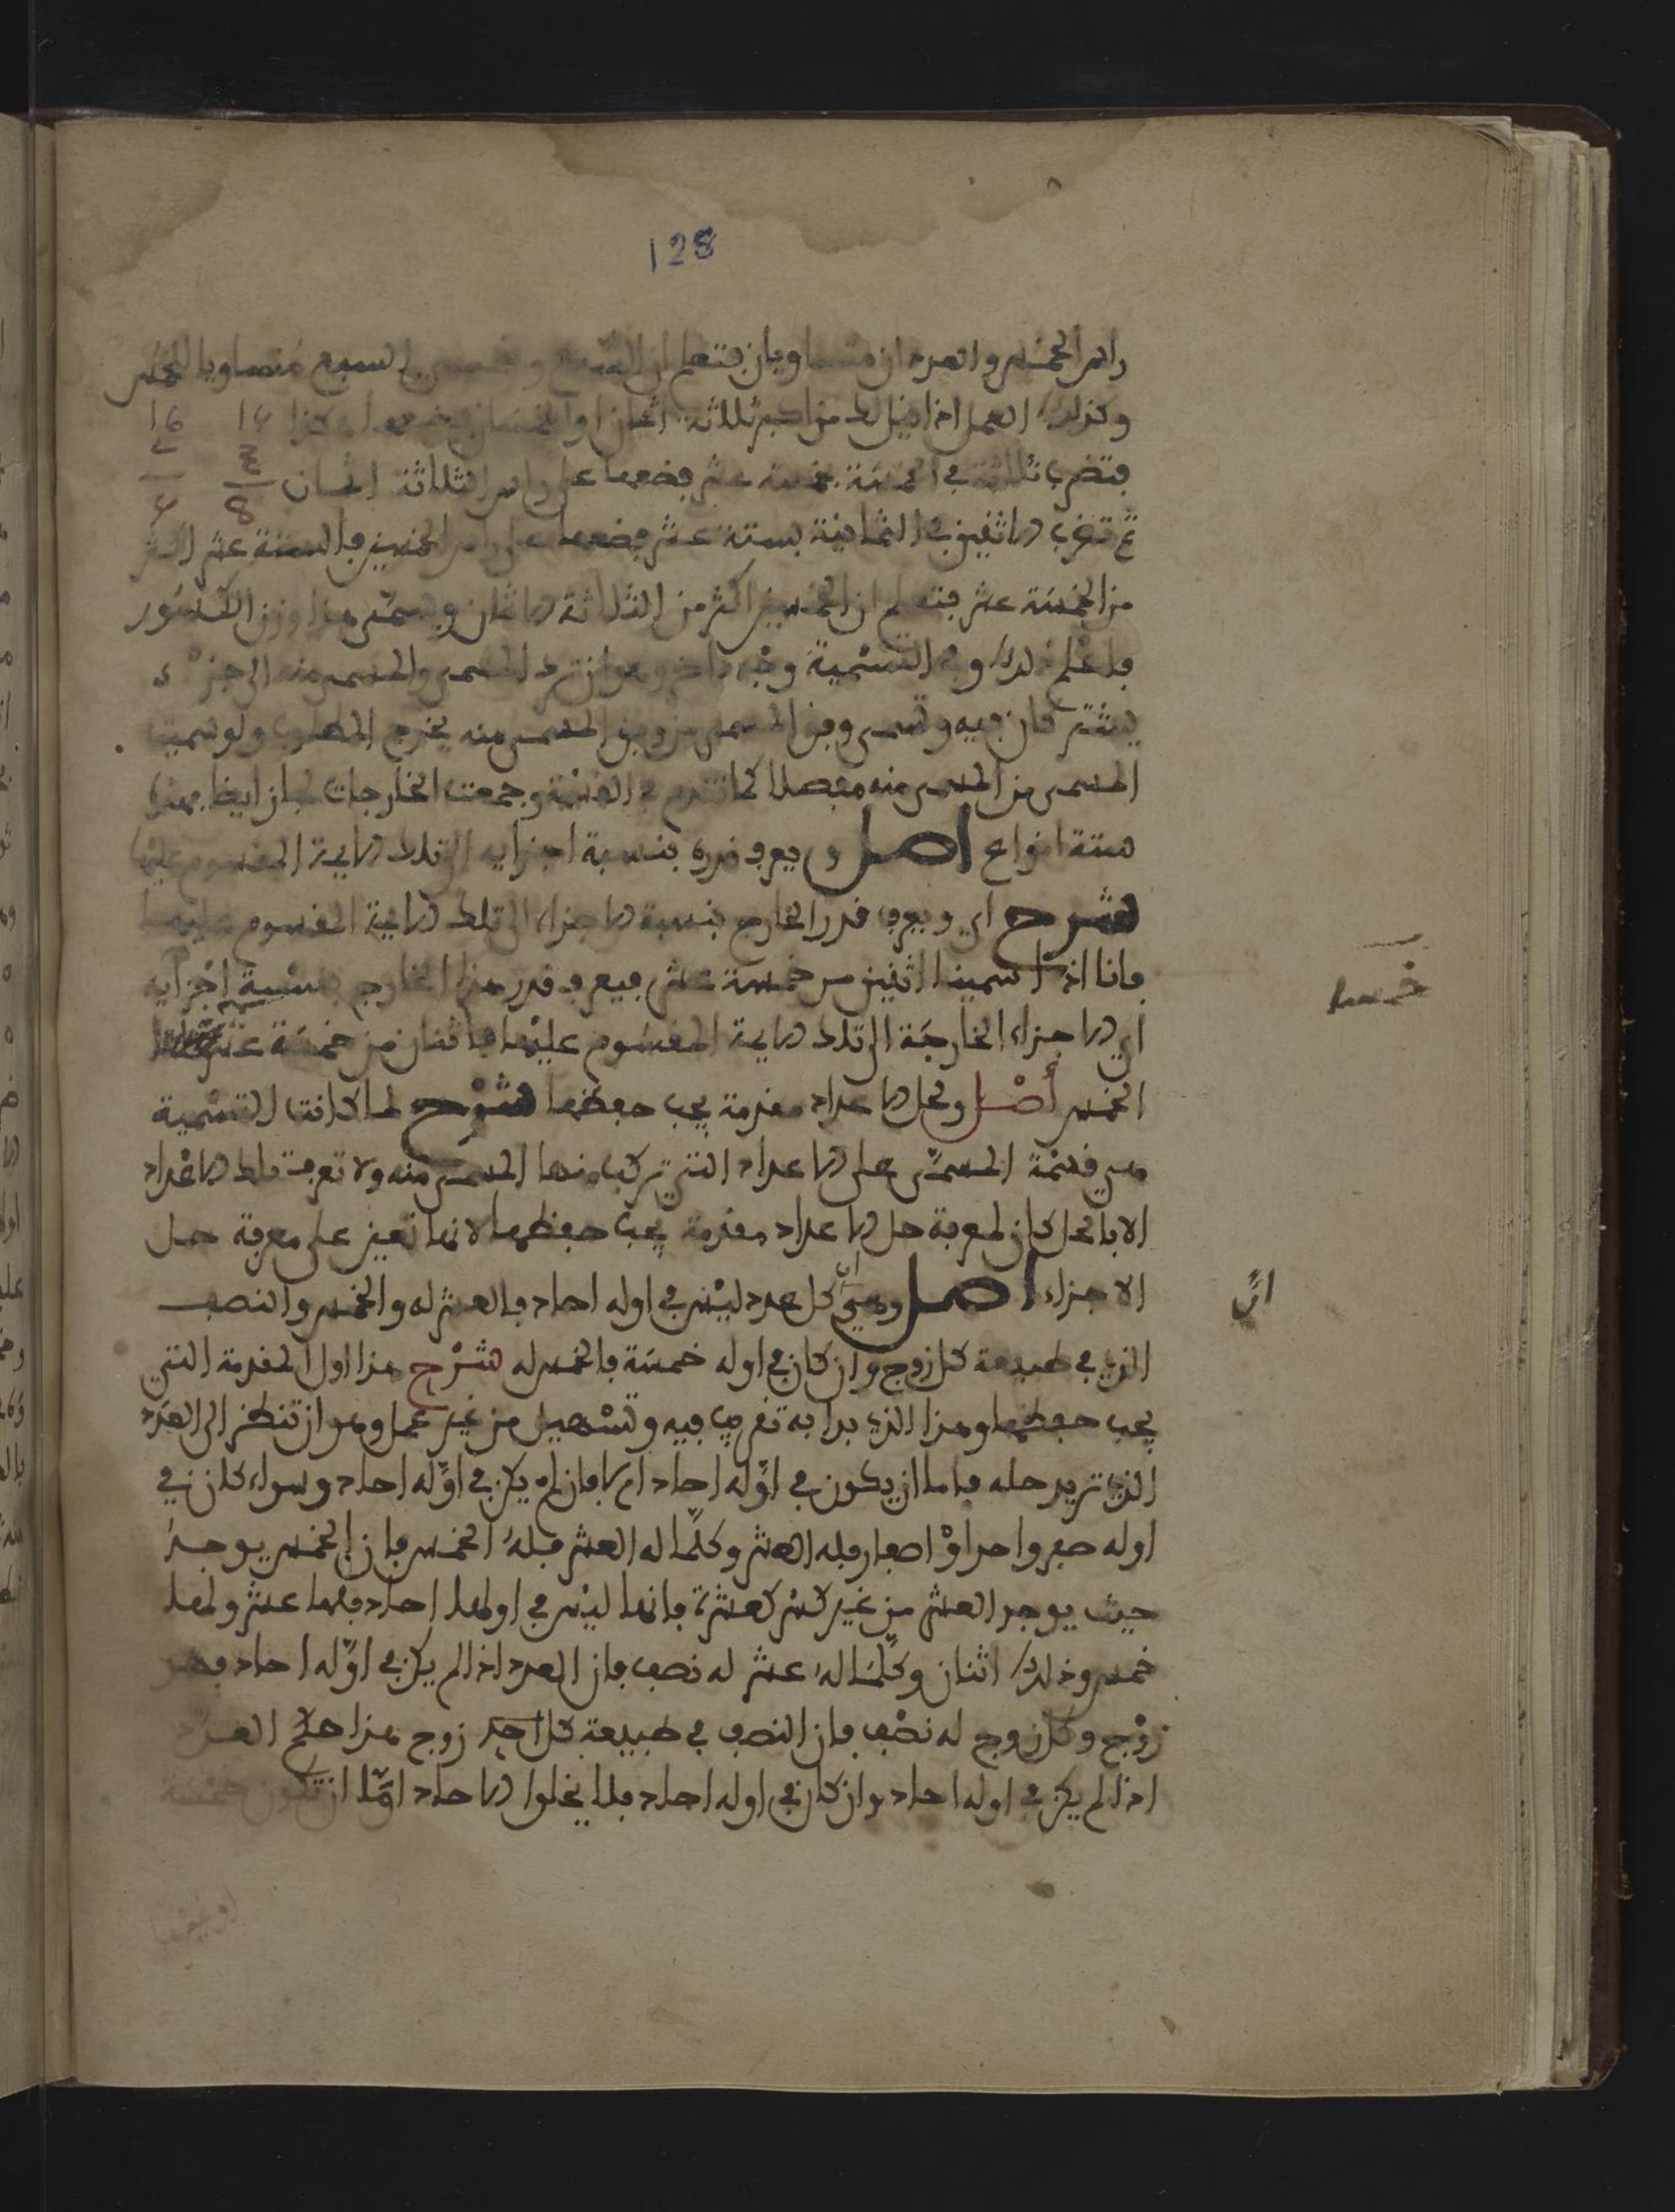 128
راس الخمس والعددان متساويان فتعلم ان السبع وخمسي السبع متساويا للخمس
وكذلك العمل اذا قيل لك من اكبر ثلاثة اثمان او الخمسان فضعها هكذا 15 16
فتضرب ثلاثة في الخمسة بخمسة عشر فضعها على راس الثلاثة اثمان 3 8
ثم تضرب الاثنين في الثمانية بستة عشر فضعها على راس الخمسين فالستة عشر اكثر
من الخمسة عشر فتعلم ان الخمسين اكثر من الثلاثة الاثمان ويسمى هذا وزن الكسور
فاعلم ذلك وفي التسمية وجه ءاخر وهو ان ترد المسمى والمسمى منه الى جزء
يشتركان فيه وتسمى وفق المسمى من وفق المسمى منه يخرج المطلوب ولو سميت
المسمى من المسمى منه مفصلا كما تقدم في القسمة وجمعت الخارجات لجاز ايضا فهذه
ستة انواع اصل ويعرف قدره بنسبة اجزايه الى تلك الاية المقسوم عليها
شرح اي ويعرف قدر الخارج بنسبة الاجزاء الى تلك الاية المقسوم عليها
فانا اذا سمينا اثنين من خمسة عشر فيعرف قدر هذا الخارج بنسبة اجزايه
اي الاجزاء الخارجة الى تلك الاية المقسوم عليها فاثنان من خمسة عشر
الخمس أصل ولحل الاعداد مقدمة يجب حفظها شرح لما كانت التسمية
هي قسمة المسمى على الاعداد التي تركب منها المسمى منه ولا تعرف تلك الاعداد
الا بالحل كان لمعرفة حل الاعداد مقدمة يجب حفظها لانها تعين على معرفة حل
الاجزاء اصل وهي ان كل عدد ليس في اوله احاد فالعشر له والخمس والنصف
الذي في طبيعة كل زوج وان كان في اوله خمسة فالخمس له شرح هذا اول المقدمة التي
يجب حفظها وهذا الذي بدا به تقريب فيه وتسهيل من غير عمل وهو ان تنظر الى العدد
الذي تريد حله فاما ان يكون في اوله احاد ام لا فان لم يكن في اوله احاد وسواء كان في
اوله صفر واحد او اصفار فله العشر وكلما له العشر فله الخمس فان الخمس يوجد
حيث يوجد العشر من غير كسر كعشرة فانها ليس في اولها احاد فلها عشر ولها
خمس وذلك اثنان وكلما له عشر له نصف فان العدد اذا لم يكن في اوله احاد فهو
زوج وكل زوج له نصف فان النصف في طبيعة كل زوج هذا حكم العدد
اذا لم يكن في اوله احاد وان كان في اوله احاد فلا يخلوا الاحاد اما ان تكون خمسة
خمسا
ان
او غيرها